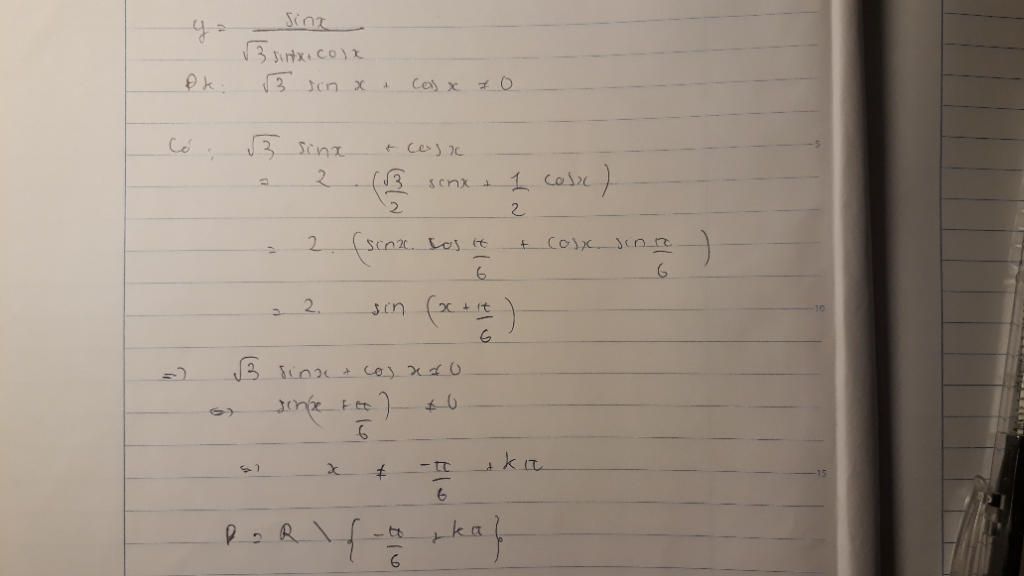 y = sinx / √3 sinx + cosx
Đk: √3 sin x + cos x ≠ 0
Có: √3 sinx + cosx
= 2 . (√3/2 sinx + 1/2 cosx)
= 2. (sinx. cos π/6 + cosx. sin π/6)
= 2. sin (x + π/6)
=> √3 sinx + cos x ≠ 0
<=> sin(x + π/6) ≠ 0
=> x ≠ -π/6 + kπ
D = R \ {-π/6 + kπ}
5
10
15